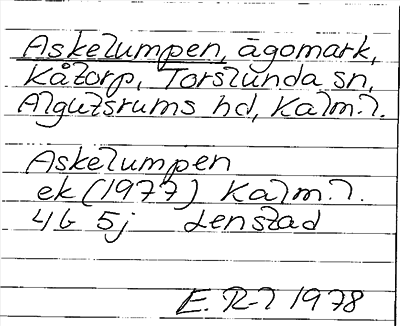 Askelumpen, ägomark,
Kåtorp, Torslunda sn,
Algutsrums hd, Kalm. l.
Askelumpen
ek (1977) Kalm. l.
4G 5j Lenstad
E. R-l 1978